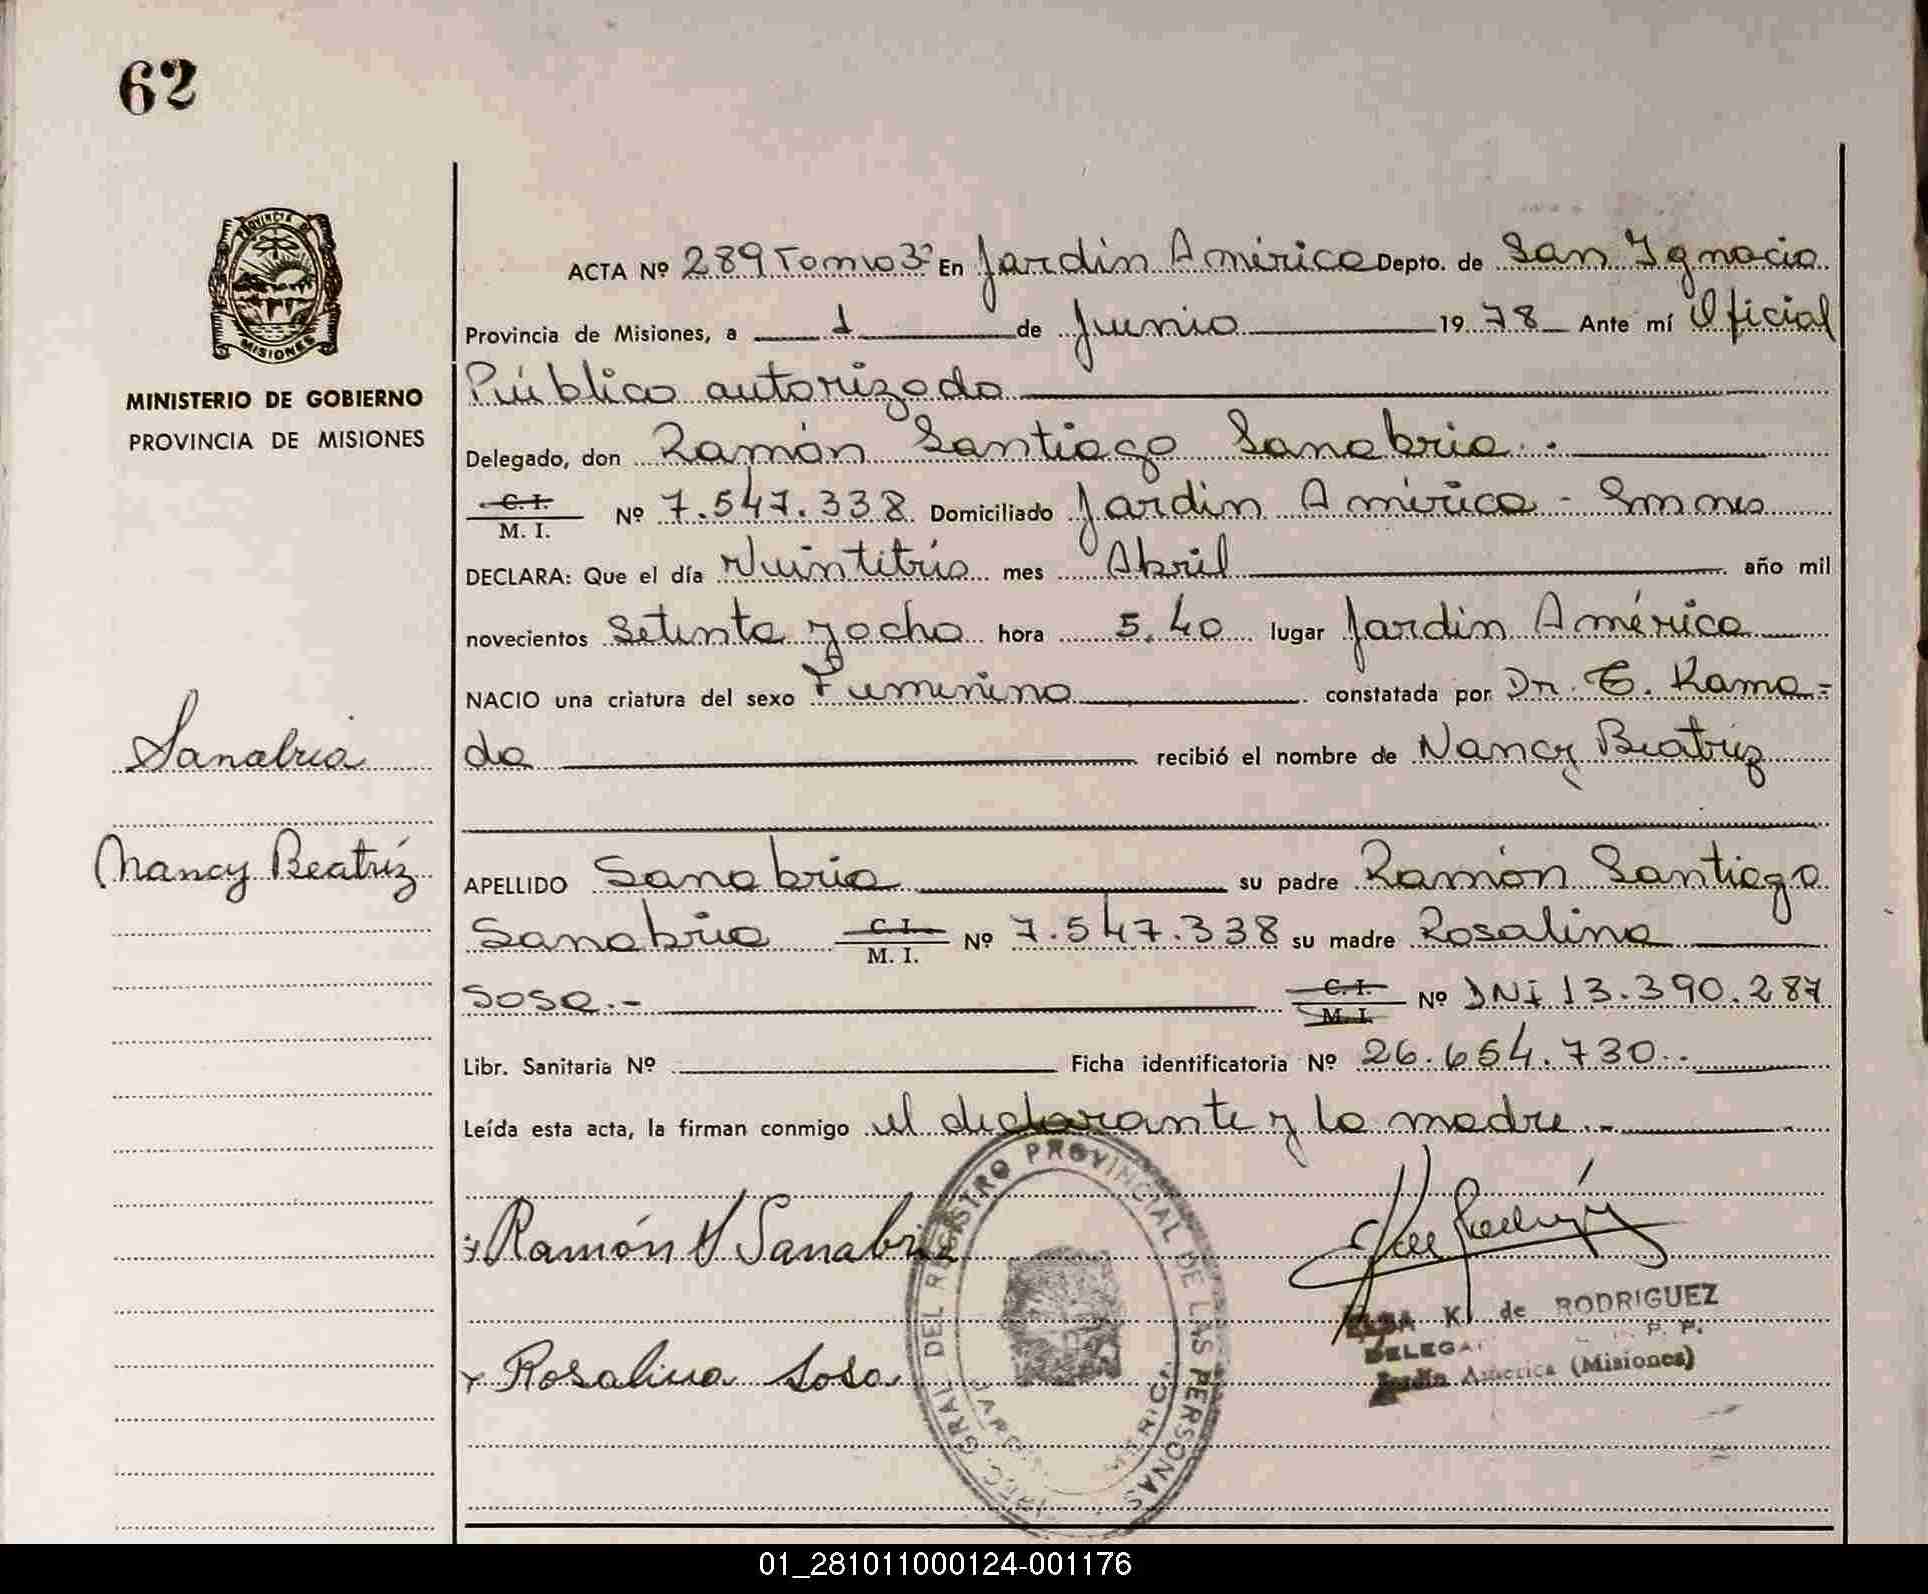 62
PROVINCIA D
MISIONES
MINISTERIO DE GOBIERNO
PROVINCIA DE MISIONES
Sanabria
Nancy Beatríz
ACTA Nº 289 Tomo 3º En Jardín América Depto. de San Ignacio
Provincia de Misiones, a 1 de Junio 1978 Ante mí Oficial
Público autorizado
Delegado, don Ramón Santiago Sanabria.-
C. I.
M. I. Nº 7.547.338 Domiciliado Jardín América -
DECLARA: Que el día Veintitrés mes Abril año mil
novecientos Setenta y ocho hora 5.40 lugar Jardín América
NACIO una criatura del sexo Femenino constatada por Dr. E. Rama=
da recibió el nombre de Nancy Beatriz
APELLIDO Sanabria su padre Ramón Santiago
Sanabria C. I. M. I. Nº 7.547.338 su madre Rosalina
Sosa.- C. I. M. I. Nº DNI 13.390.287
Libr. Sanitaria Nº Ficha identificatoria Nº 26.654.730.-
Leída esta acta, la firman conmigo el declarante y la madre.-
Ramón S Sanabria
Rosalina Sosa
GRAL DEL REGISTRO PROVINCIAL DE LAS PERSONAS
ELSA K. de RODRIGUEZ
DELEGA
Jardín América (Misiones)
01_281011000124-001176